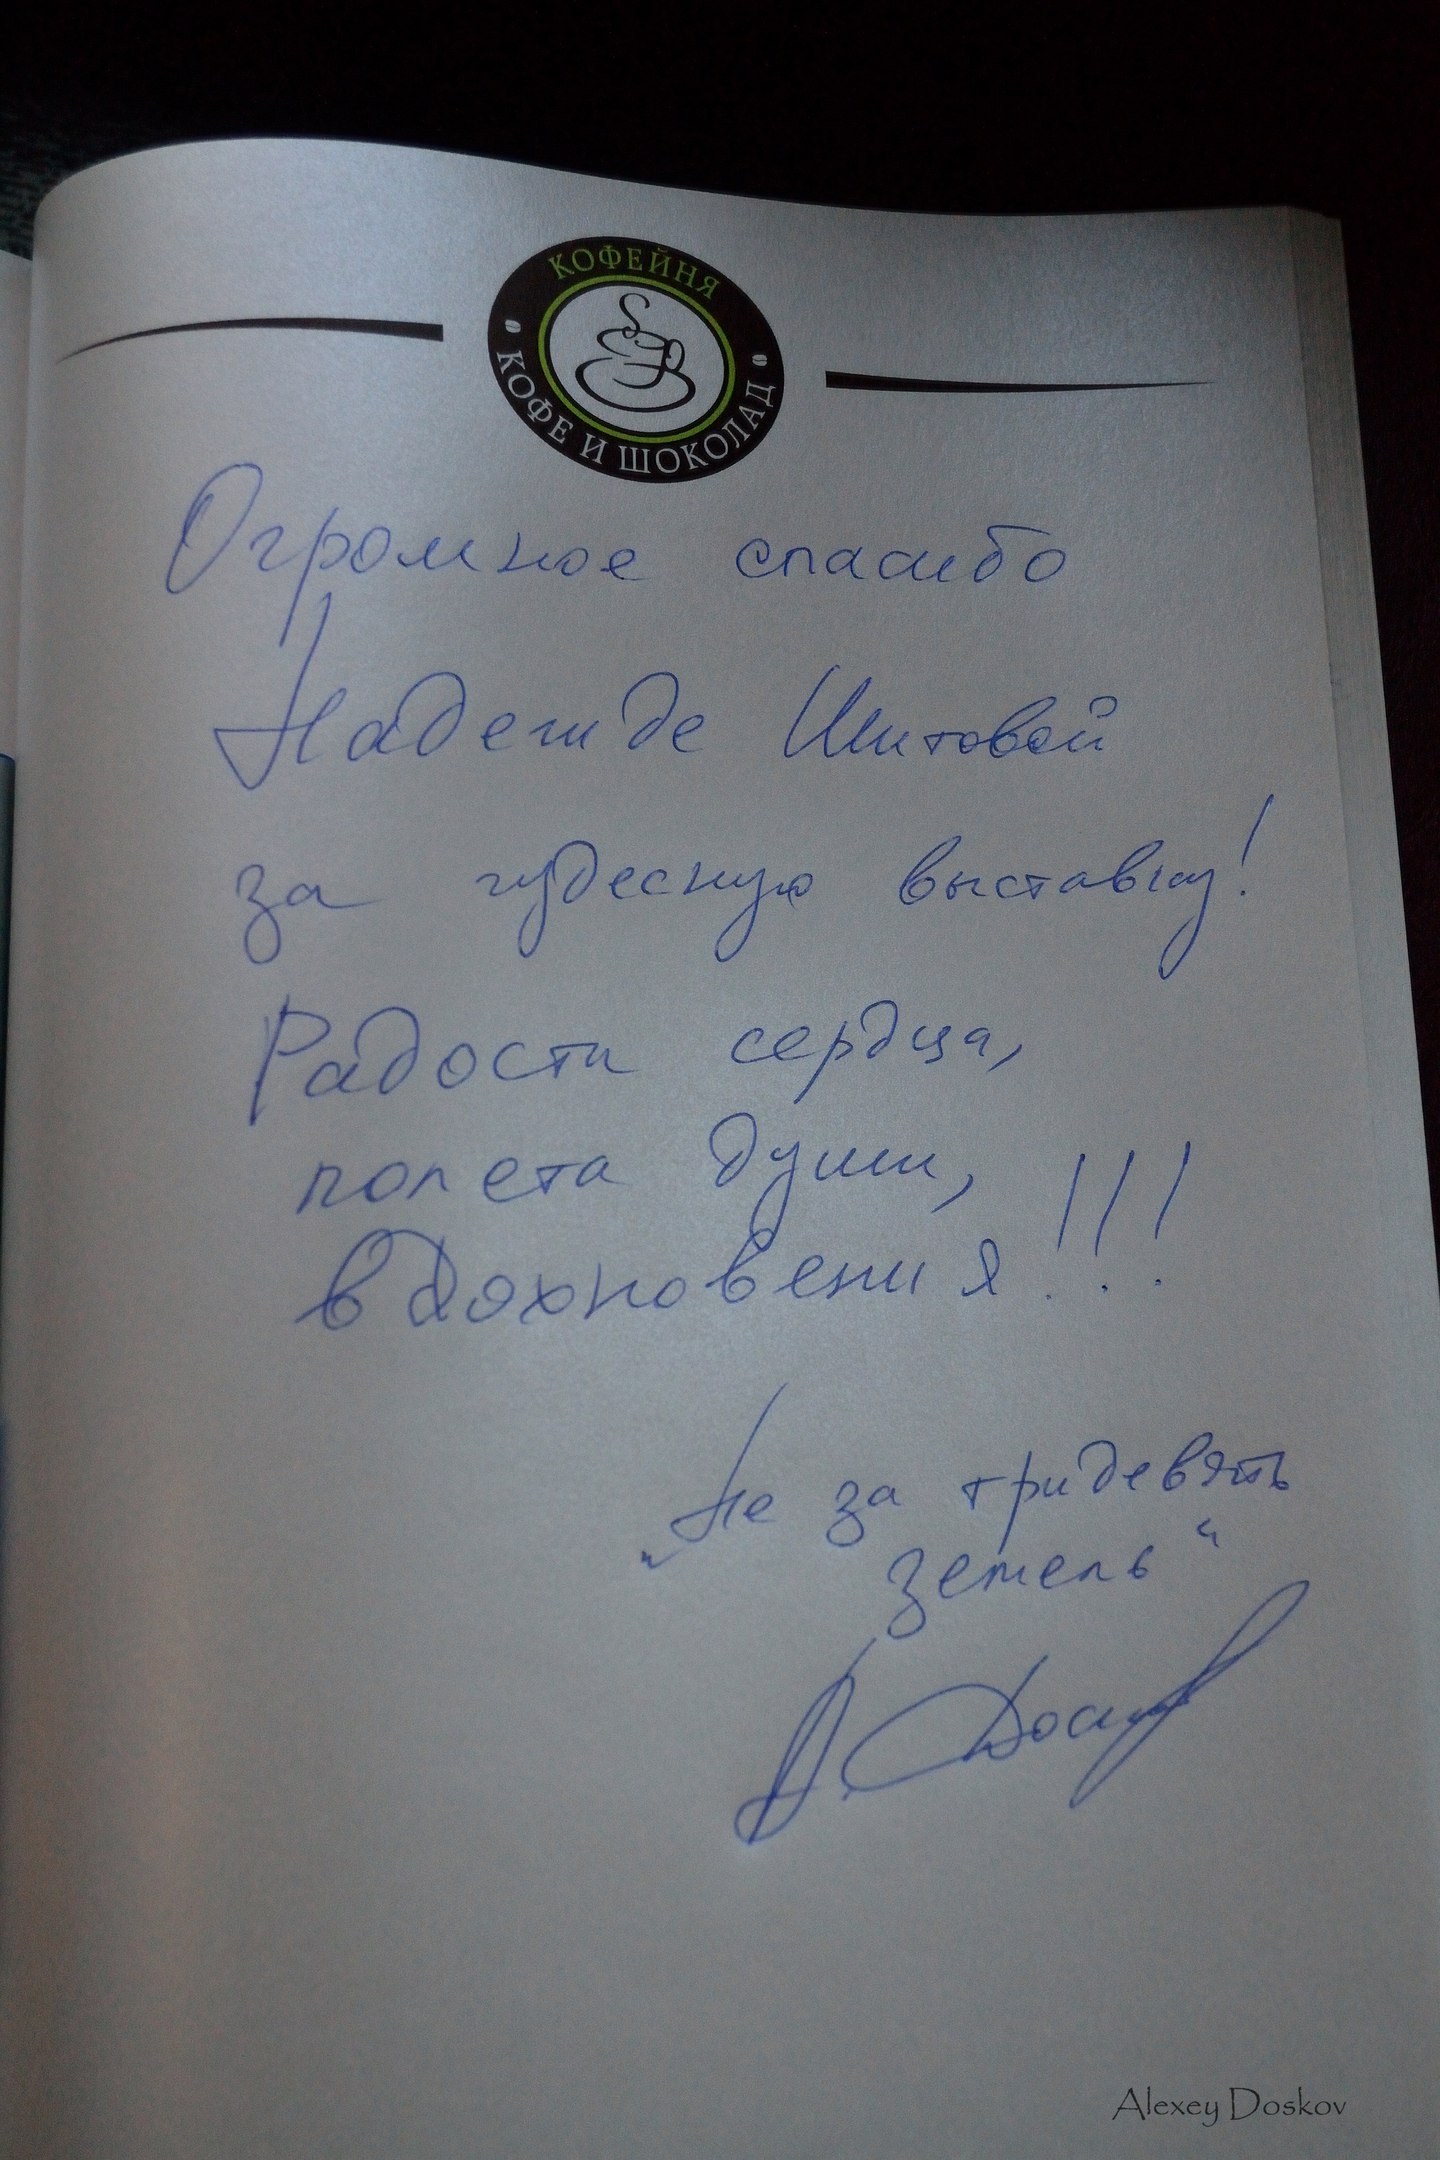 КОФЕЙНЯ
КОФЕ И ШОКОЛАД
Огромное спасибо
Надежде Шитовой
за чудесную выставку!
Радости сердца,
полета души,
вдохновения!!!
„Не за тридевять
земель“
А. Досков
Alexey Doskov